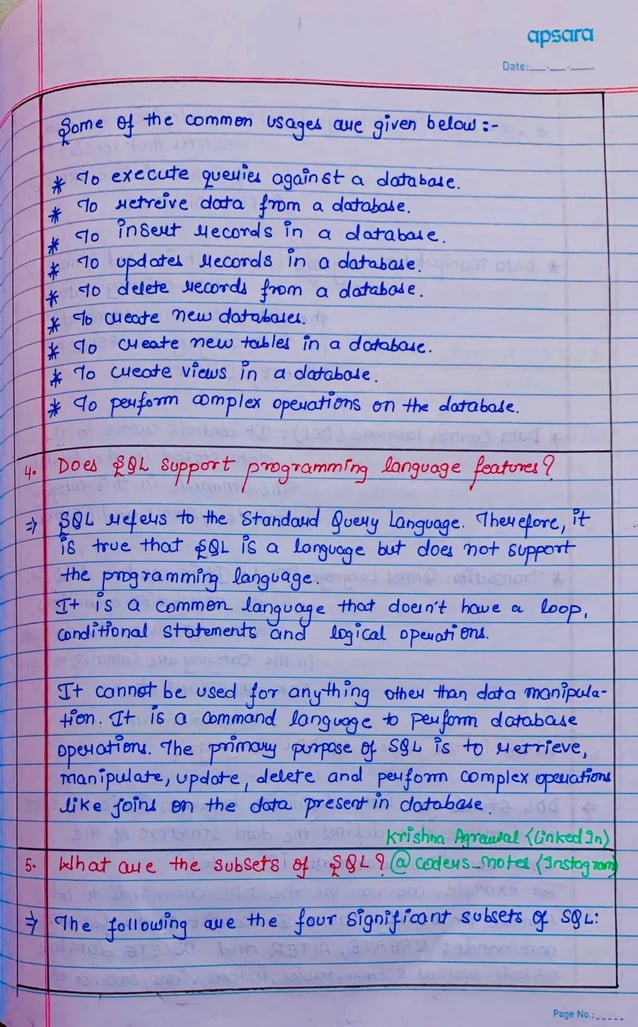 apsara
Date:__.__.__
Some of the common usages are given below :-
* To execute queries against a database.
* To retreive data from a database.
* To insert records in a database.
* To updates records in a database.
* To delete records from a database.
* To create new databases.
* To create new tables in a database.
* To create views in a database.
* To perform complex operations on the database.
4. Does SQL support programming language features?
⇒ SQL refers to the Standard Query Language. Therefore, it
is true that SQL is a language but does not support
the programming language.
It is a common language that doesn't have a loop,
conditional statements and logical operations.
It cannot be used for anything other than data manipula-
tion. It is a command language to perform database
operations. The primary purpose of SQL is to retrieve,
manipulate, update, delete and perform complex operations
like joins on the data present in database.
Krishna Agrawal (LinkedIn)
5. What are the subsets of SQL? @coders_notes (Instagram)
⇒ The following are the four significant subsets of SQL:
Page No.:_____